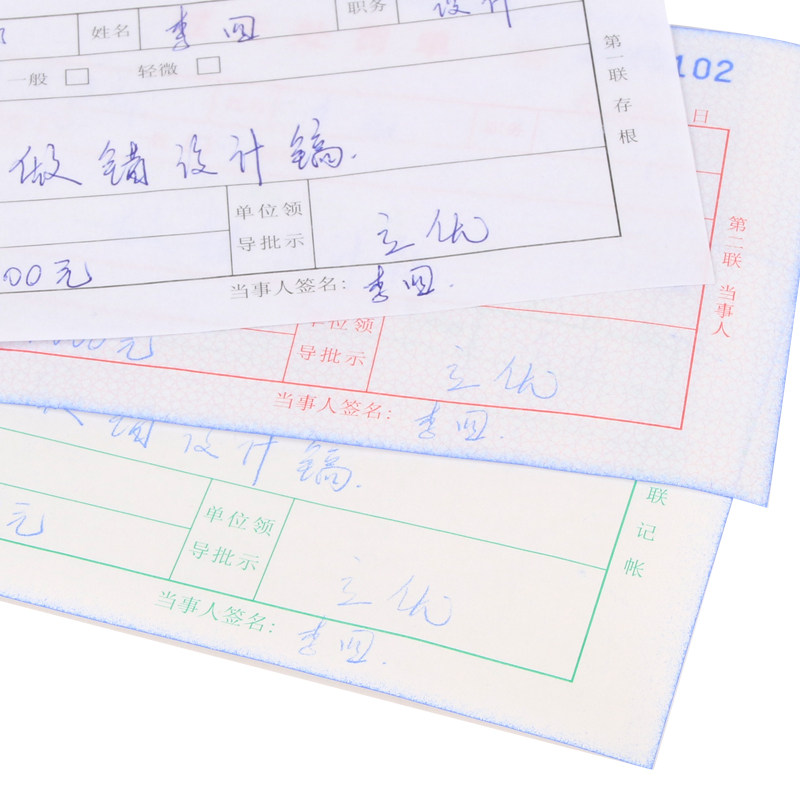 姓名 李四 职务 设计
一般 □ 轻微 □
做错设计镐.
单位领
导批示
立优
00元
当事人签名: 李四.
第一联 存根
102
日
第二联 当事人
单位领
导批示
立优
000元
当事人签名: 李四.
错设计镐.
单位领
导批示
立优
元
当事人签名: 李四.
联 记帐